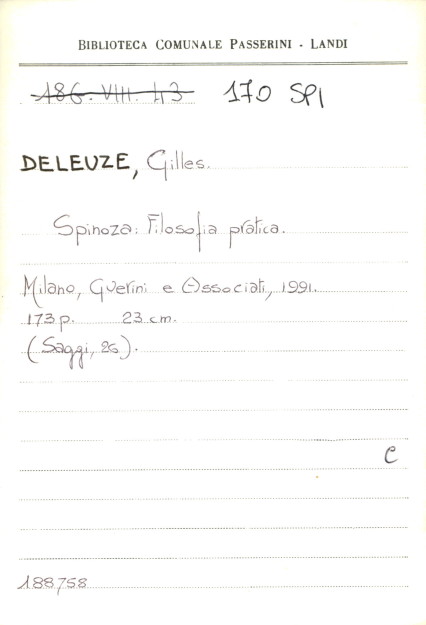 BIBLIOTECA COMUNALE PASSERINI - LANDI
186. VIII. 43 170 SPI
DELEUZE, Gilles.
Spinoza: Filosofia pratica.
Milano, Guerini e Associati, 1991.
173 p. 23 cm.
(Saggi, 26).
C
188758